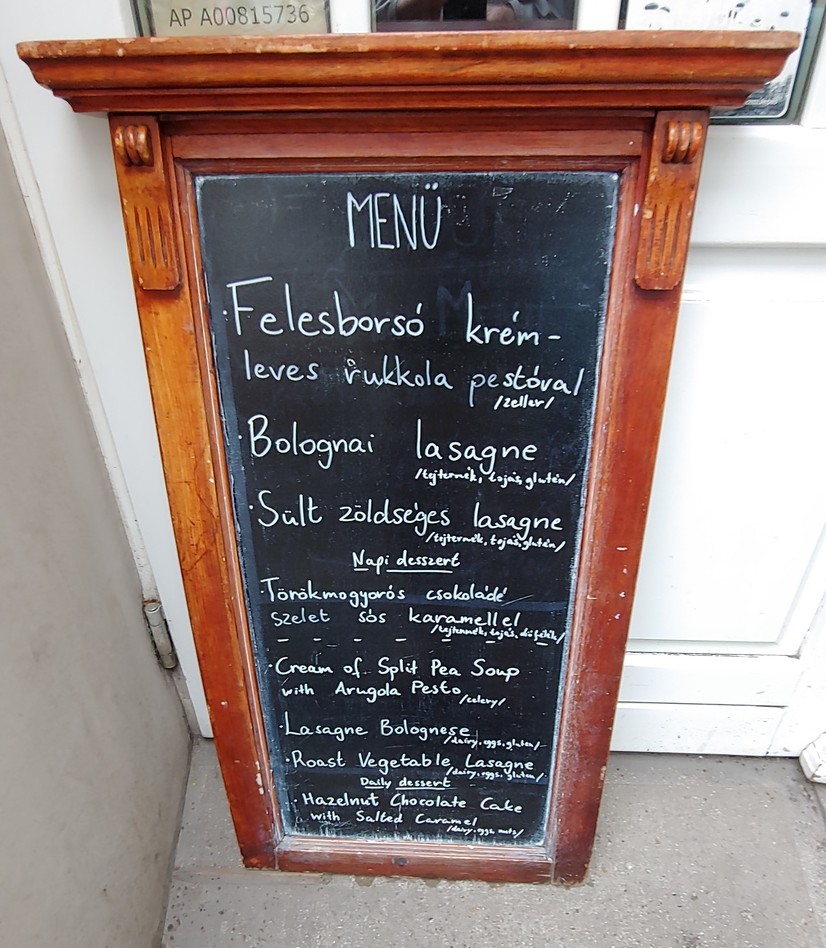 AP A00815736
MENÜ
· Felesborsó krém-
leves rukkola pestóval
/zeller/
· Bolognai lasagne
/tejtermék, tojás, glutén/
· Sült zöldséges lasagne
/tejtermék, tojás, glutén/
Napi desszert
· Törökmogyorós csokoládé
szelet sós karamellel
/tejtermék, tojás, diófélék/
- - - - - - -
· Cream of Split Pea Soup
with Arugola Pesto
/celery/
· Lasagne Bolognese
/dairy, eggs, gluten/
· Roast Vegetable Lasagne
/dairy, eggs, gluten/
Daily dessert
· Hazelnut Chocolate Cake
with Salted Caramel
/dairy, eggs, nuts/